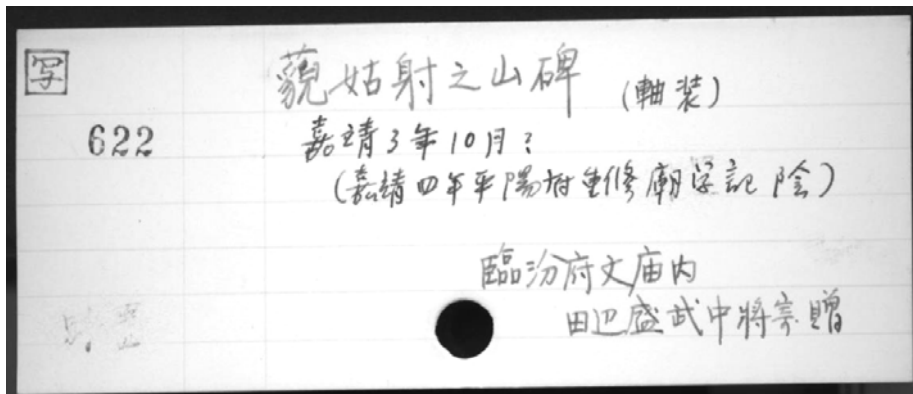 写
藐姑射之山碑 (軸装)
622
嘉靖3年10月?
(嘉靖四年平陽府重修廟学記 陰)
臨汾府文庙内
田辺盛武中將寄贈